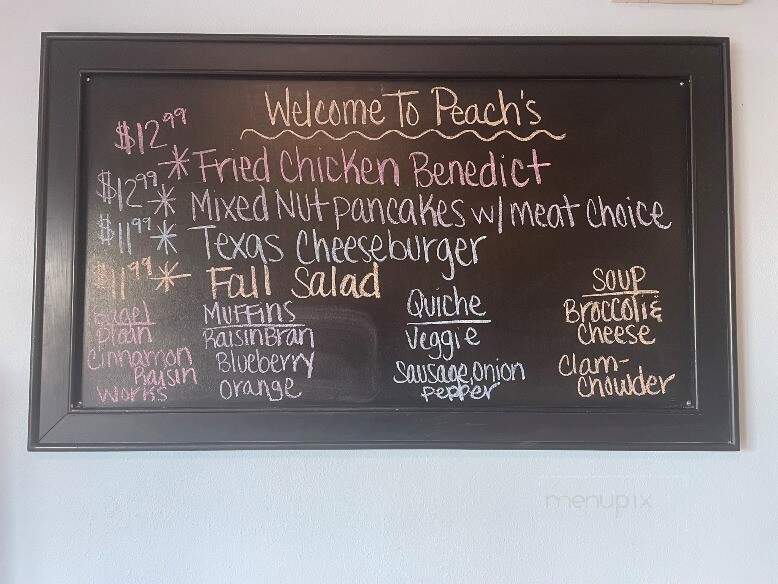 Welcome To Peach's
$12.99 * Fried Chicken Benedict
$12.99 * Mixed Nut pancakes w/ meat choice
$11.99 * Texas Cheeseburger
$11.99 * Fall Salad
Bagel
Plain
Cinnamon
Raisin
Works
Muffins
RaisinBran
Blueberry
Orange
Quiche
Veggie
Sausage, onion
pepper
Soup
Broccoli &
Cheese
Clam-
chowder
menupix